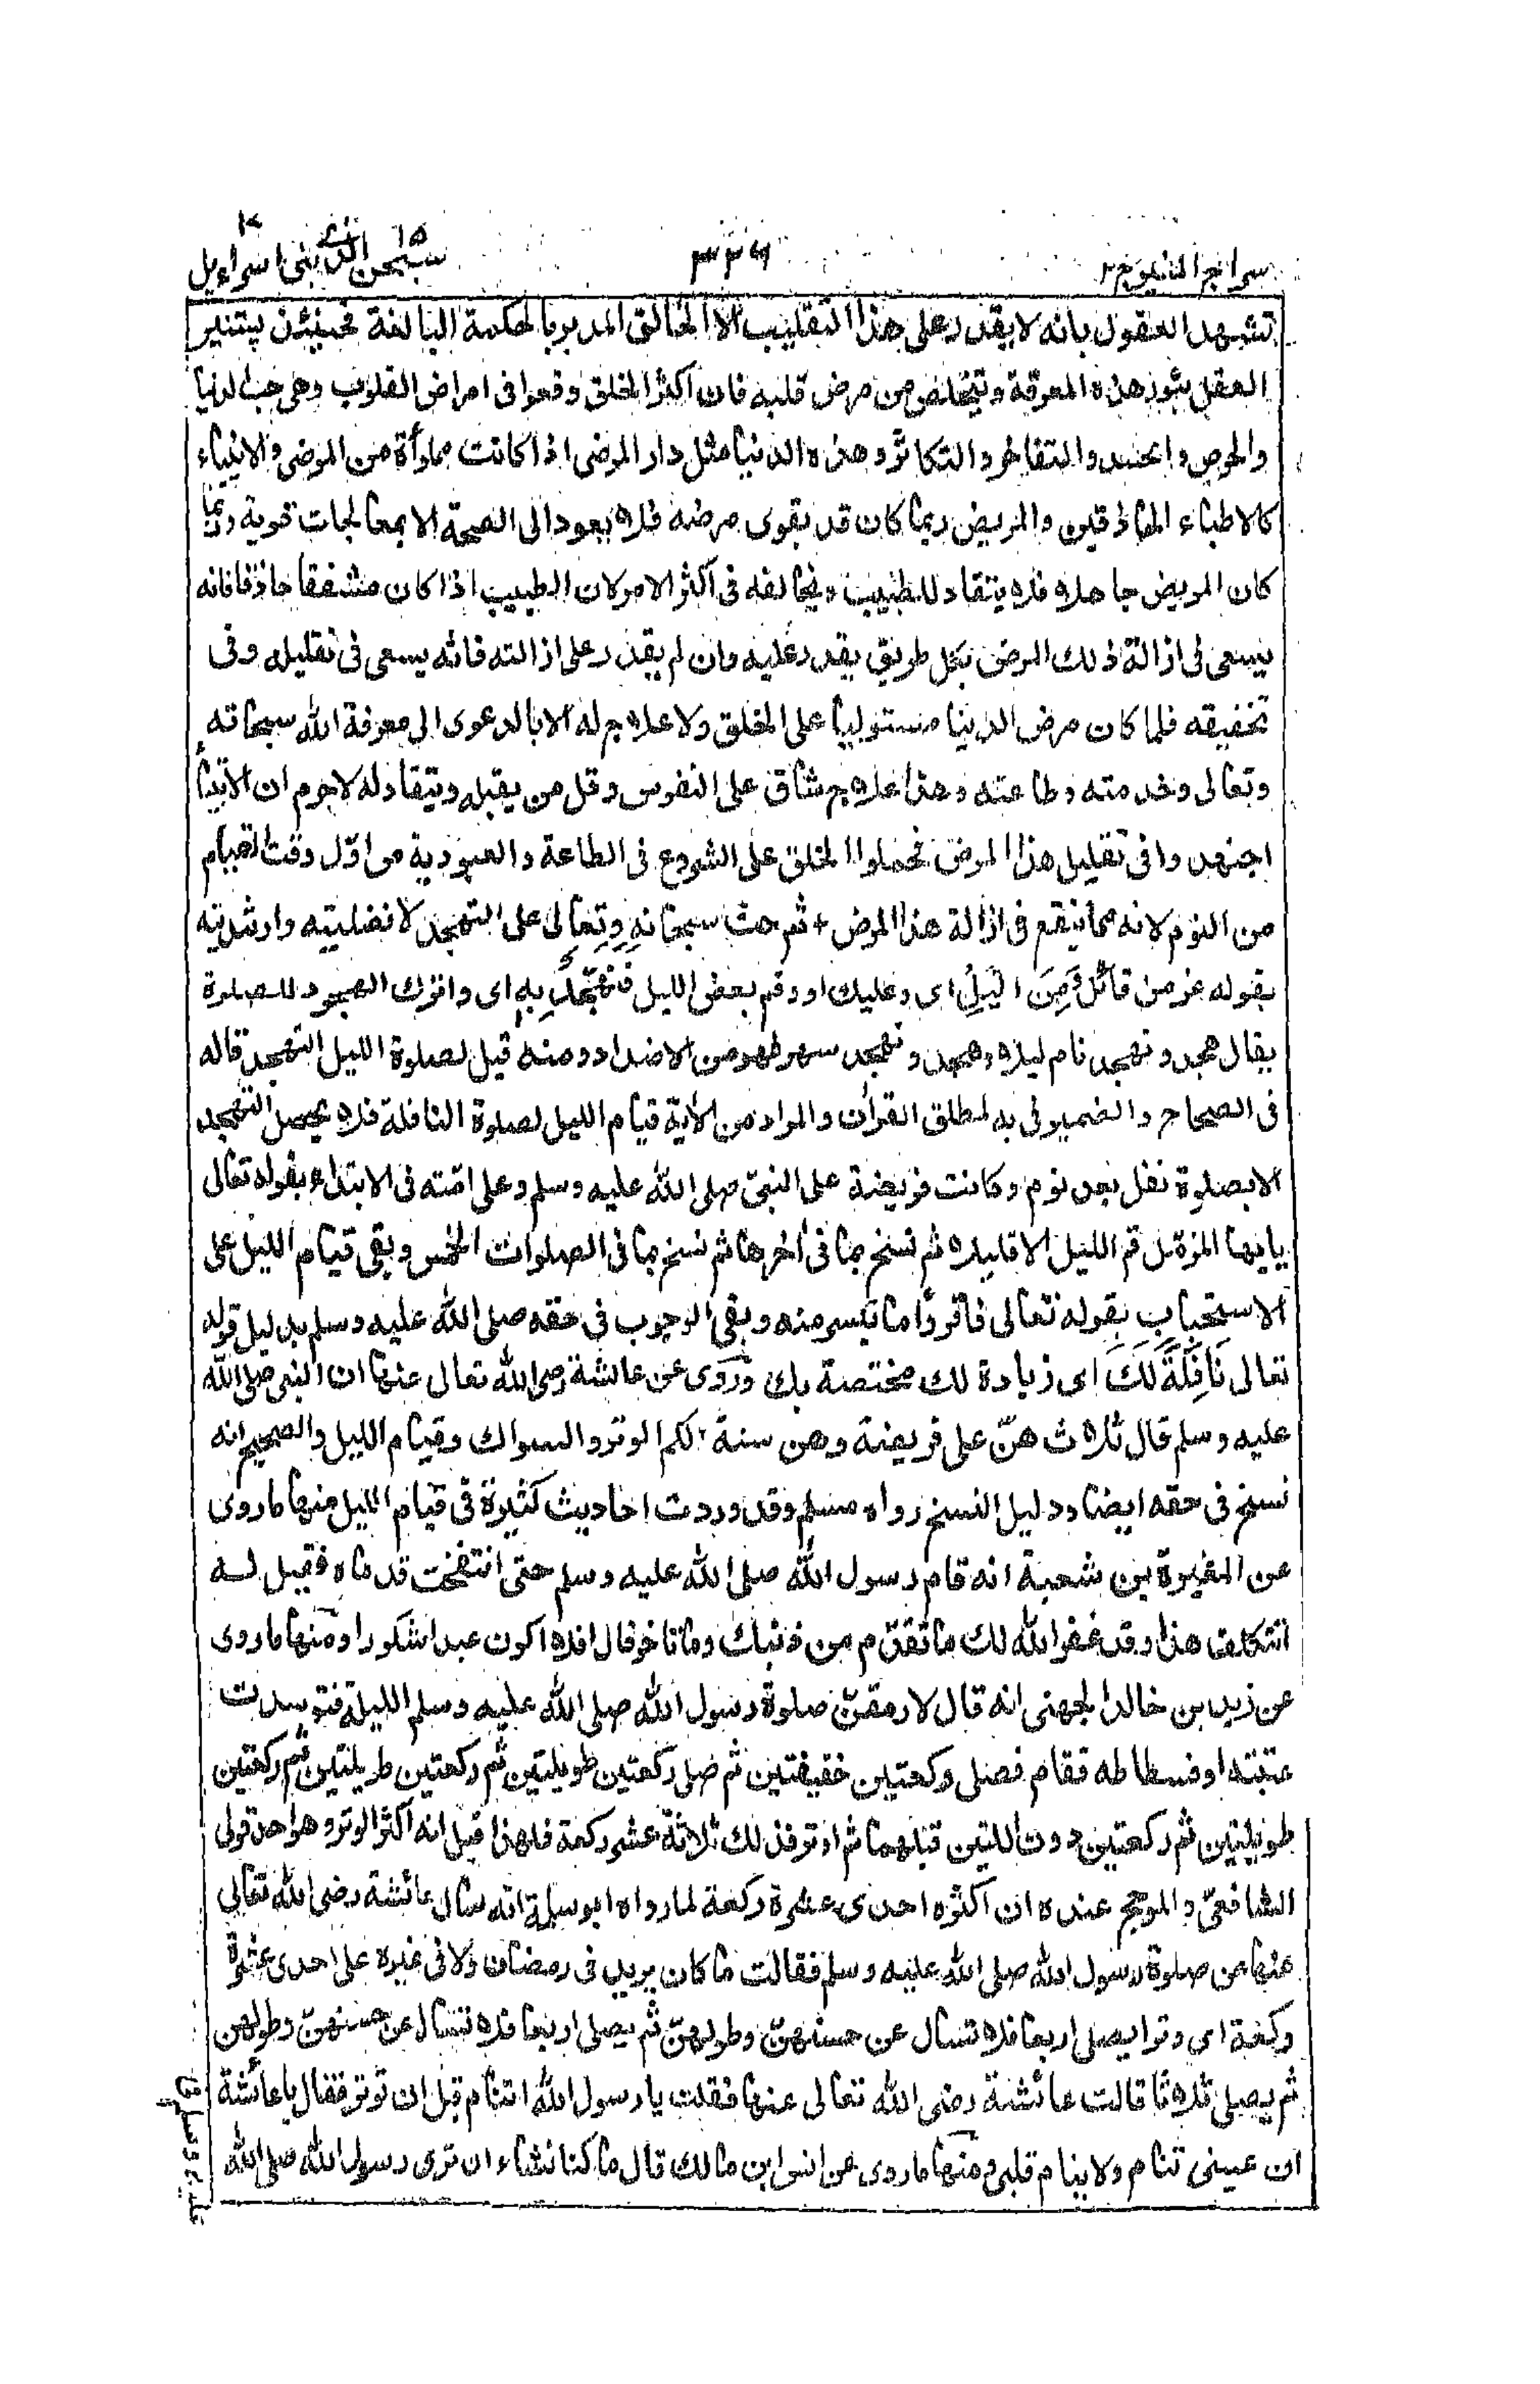 سراج المنير ج ٢
٣٣٦
سبحن الذى ١٥ بنى اسراءيل ١٧
تشهد العقول بانه لا يقدر على هذا التقليب الا الخالق المدبر بالحكمة البالغة فحينئذ يستنير
العقل بنور هذه المعرفة ويتخلص من مرض قلبه فان اكثر الخلق وقعوا فى امراض القلوب وهى حب الدنيا
والحرص والحسد والتفاخر والتكاثر وهذه الدنيا مثل دار المرضى اذا كانت مملوأة من المرضى والانبياء
كالاطباء الحاذقين والمريض ربما كان قد يقوى مرضه فلا يعود الى الصحة الا بمعالجات قوية وربما
كان المريض جاهلا فلا ينقاد للطبيب ويخالفه فى اكثر الامر لان الطبيب اذا كان مشفقا حاذقا فانه
يسعى فى ازالة ذلك المرض بكل طريق يقدر عليه وان لم يقدر على ازالته فانه يسعى فى تقليله وفى
تخفيفه فلما كان مرض الدنيا مستوليا على الخلق ولا علاج له الا بالدعوى الى معرفة الله سبحانه
وتعالى وخدمته وطاعته وهذا علاج شاق على النفوس وقل من يقبله وينقاد له لاجرم ان الانبياء
اجتهدوا فى تقليل هذا المرض فحملوا الخلق على الشروع فى الطاعة والعبودية من اوّل وقت القيام
من النوم لانه مما ينفع فى ازالة هذا المرض + ثم حث سبحانه وتعالى على التهجد لافضليته وارشديته
بقوله عز من قائل وَمِنَ الَّيْلِ اى وعليك او وقم بعض الليل فَتَهَجَّدْ بِهٖ اى واترك الهجود للصلوة
يقال هجد وتهجد نام ليلا وهجد وتهجد سهر فهو من الاضداد ومنه قيل لصلوة الليل التهجد قاله
فى الصحاح والضمير فى به لمطلق القرآن والمراد من الآية قيام الليل لصلوة النافلة فلا يحصل التهجد
الا بصلوة نفل بعد نوم وكانت فريضة على النبىّ صلى الله عليه وسلم وعلى امّته فى الابتداء بقوله تعالى
يايها المزمل قم الليل الا قليلا ثم نسخ بما فى آخرها ثم نسخ بما فى الصلوات الخمس وبقى قيام الليل على
الاستحباب بقوله تعالى فاقرؤا ما تيسر منه وبقى الوجوب فى حقه صلى الله عليه وسلم بدليل قوله
تعالى نَافِلَةً لَكَ اى زيادة لك مختصة بك وروى عن عائشة رضى الله تعالى عنها ان النبى صلى الله
عليه وسلم قال ثلاث هنّ على فريضة وهن سنة لكم الوتر والسواك وقيام الليل والصحيح انه
نسخ فى حقه ايضا ودليل النسخ رواه مسلم وقد وردت احاديث كثيرة فى قيام الليل منها ما روى
عن المغيرة بن شعبة انه قام رسول الله صلى الله عليه وسلم حتى انتفخت قدماه فقيل له
اتتكلف هذا وقد غفر الله لك ما تقدّم من ذنبك وما تاخر فقال افلا اكون عبدا شكورا ومنها ما روى
عن زيد بن خالد الجهنى انه قال لارمقنّ صلوة رسول الله صلى الله عليه وسلم الليلة فتوسدت
عتبته او فسطاطه فقام فصلى ركعتين خفيفتين ثم صلى ركعتين طويلتين ثم ركعتين طويلتين ثم ركعتين
طويلتين ثم ركعتين دون اللتين قبلهما ثم اوتر فذلك ثلاثة عشر ركعة فلهذا قيل انه اكثر الوتر وهو احد قولى
الشافعىّ والمرجح عنده ان اكثره احدى عشرة ركعة لما رواه ابو سلمة انه سأل عائشة رضى الله تعالى
عنها عن صلوة رسول الله صلى الله عليه وسلم فقالت ما كان يزيد فى رمضان ولا فى غيره على احدى عشرة
ركعة اى وترا يصلى اربعا فلا تسأل عن حسنهنّ وطولهنّ ثم يصلى اربعا فلا تسأل عن حسنهنّ وطولهن
ثم يصلى ثلاثا قالت عائشة رضى الله تعالى عنها فقلت يا رسول الله اتنام قبل ان توتر فقال يا عائشة
ان عينى تنام ولا ينام قلبى ومنها ما روى عن انس ابن مالك قال ما كنا نشاء ان نرى رسول الله صلى الله
عليه وسلم